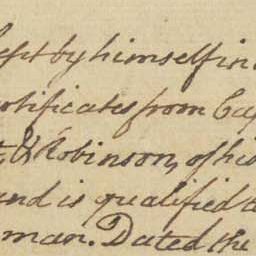 kept by himself in
ertificates from Cap
t, & Robinson, of his
and is qualified t
man. Dated the